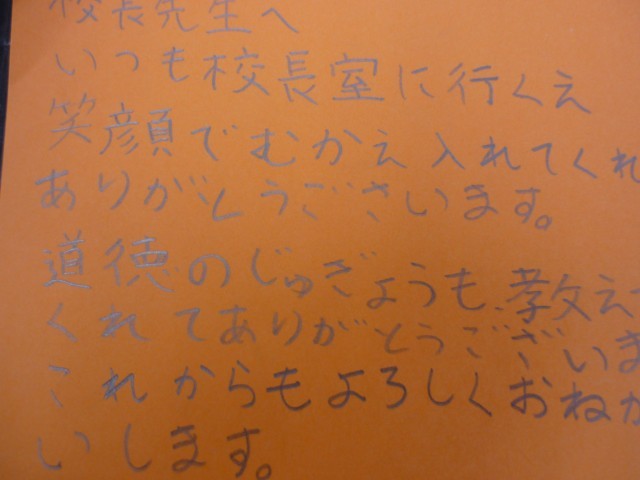 校長先生へ
いつも校長室に行くえ
笑顔でむかえ入れてくれ
ありがとうございます。
道徳のじゅぎょうも、教えて
くれてありがとうございま
これからもよろしくおねが
いします。